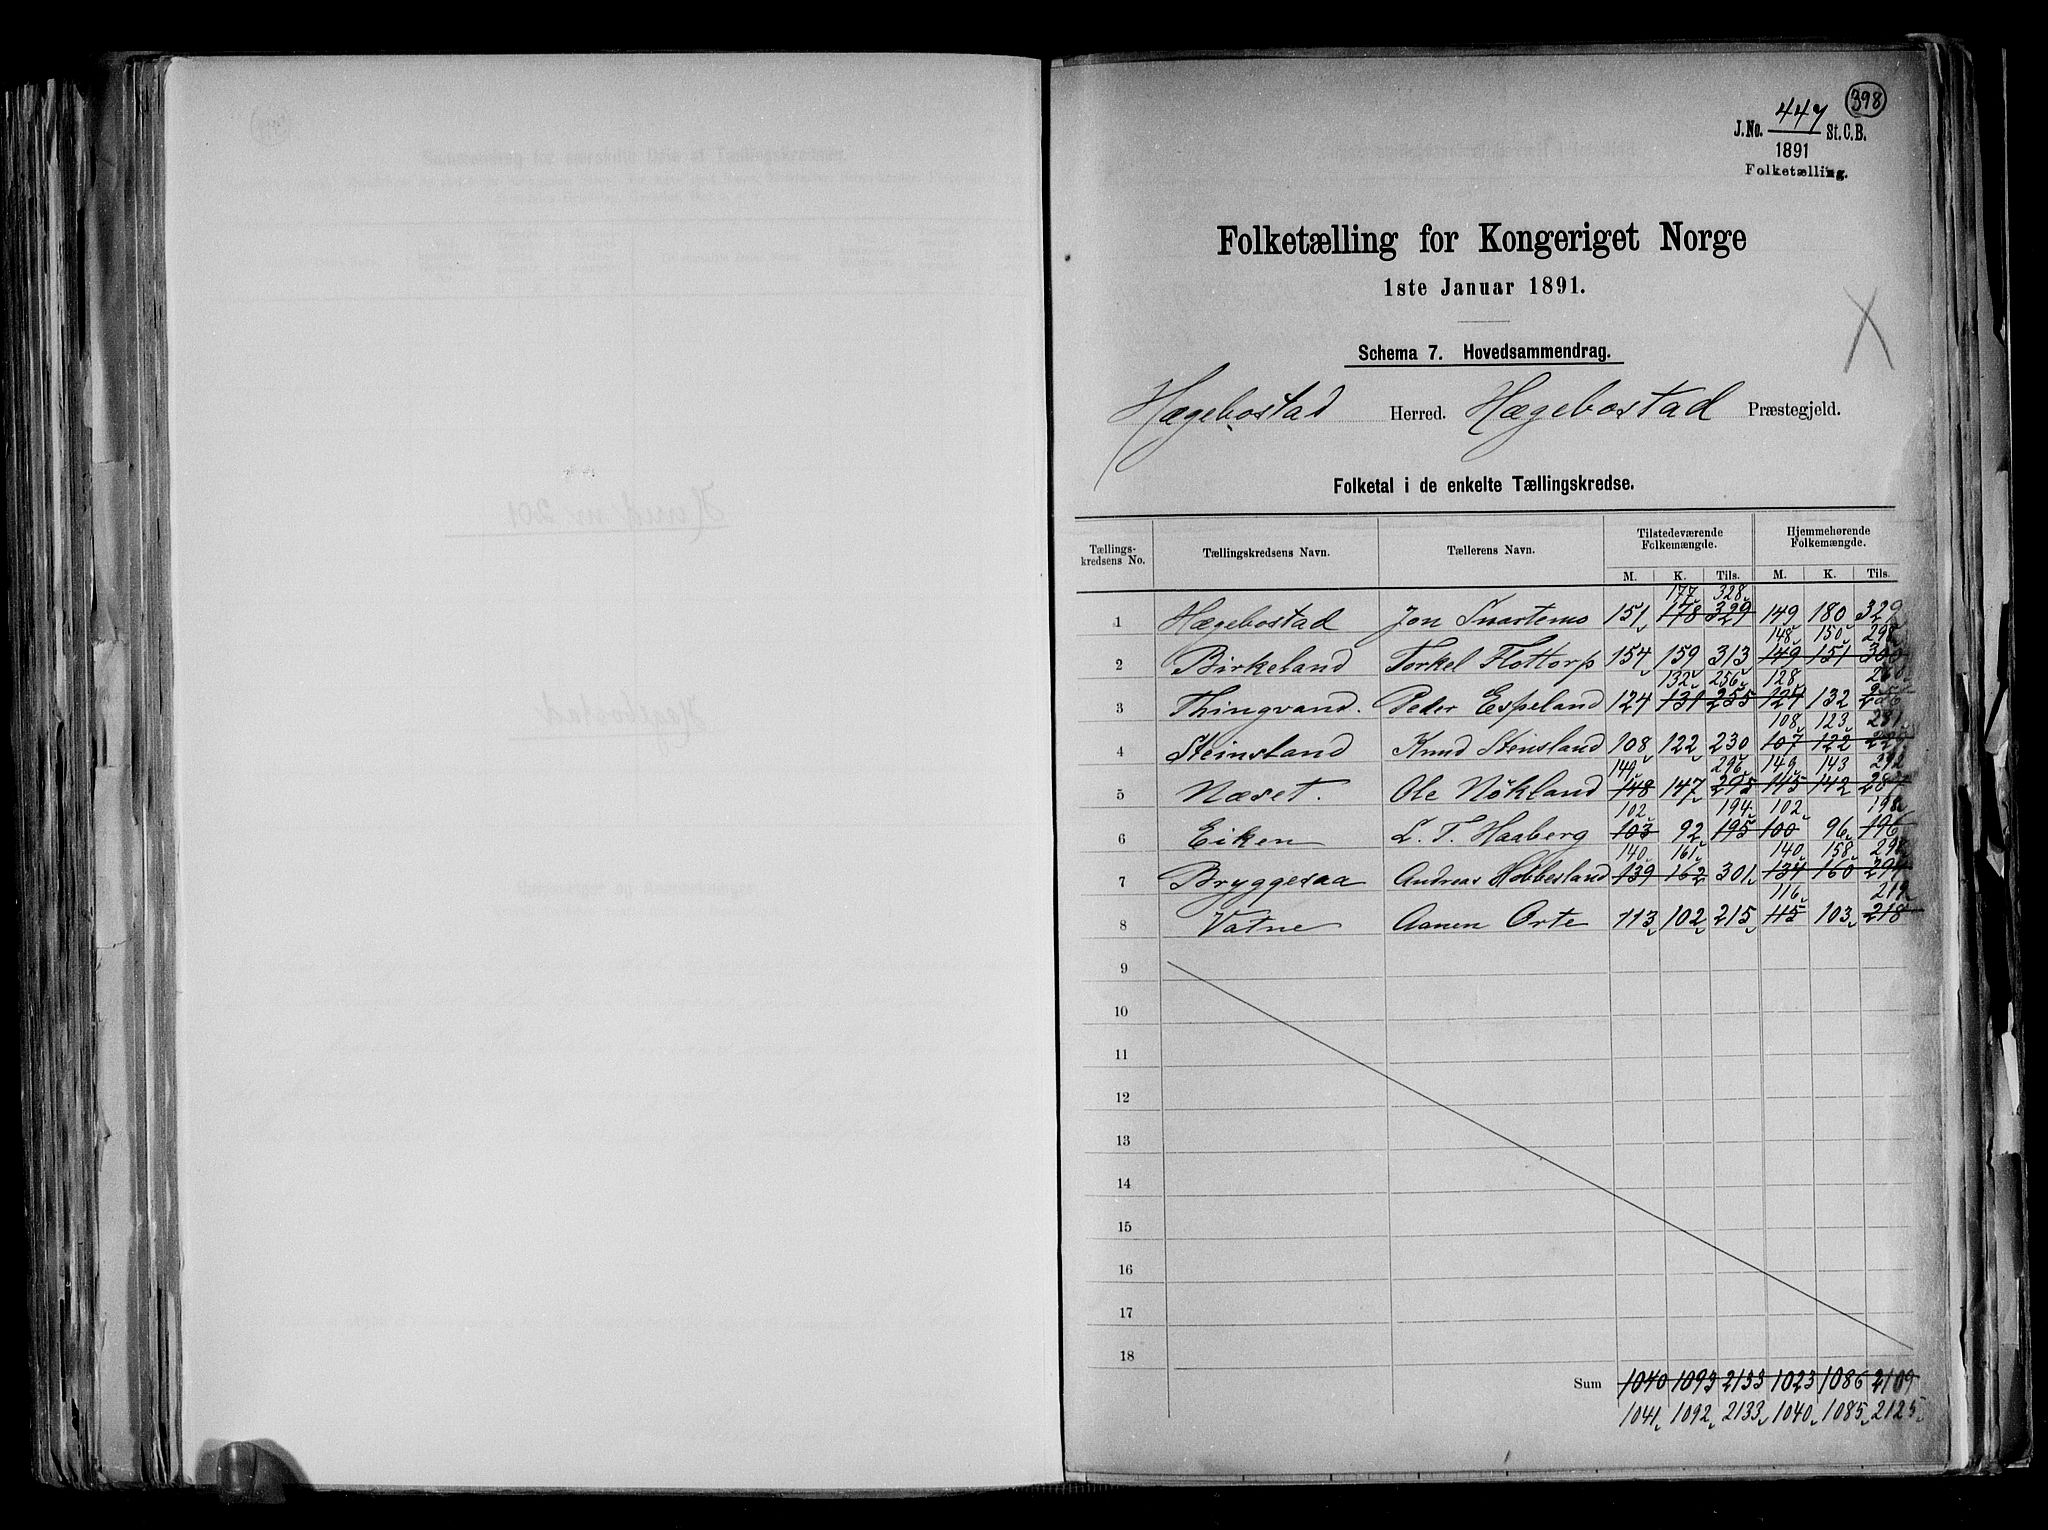 398
J.No. 447 St.C.B.
1891
Folketælling.
Folketælling for Kongeriget Norge
1ste Januar 1891.
Schema 7. Hovedsammendrag.
Hægebostad Herred. Hægebostad Præstegjeld.
Folketal i de enkelte Tællingskredse.
Tællings-kredsens No. Tællingskredsens Navn. Tællerens Navn. Tilstedeværende Folkemængde. Hjemmehørende Folkemængde.
M. K. Tils. M. K. Tils.
177 328
1 Hægebostad Jon Snartemo 151 178 329 149 180 329
148 150 298
2 Birkeland Torkel Flottorp 154 159 313 149 151 300
132 256 128 260
3 Thingvand. Peder Espeland 124 131 255 124 132 256
108 123 231
4 Steinsland Knud Steinsland 108 122 230 107 122 229
149 296 149 143 292
5 Næset. Ole Nökland 148 147 295 145 142 287
102 194 102 198
6 Eiken L. T. Haaberg 103 92 195 100 96 196
140 161 140 158 298
7 Bryggesaa Andreas Hobbesland 139 162 301 134 160 294
116 219
8 Vatne Aanen Orte 113 102 215 115 103 218
9
10
11
12
13
14
15
16
17
18
Sum 1040 1093 2133 1023 1086 2109
1041 1092 2133 1040 1085 2125